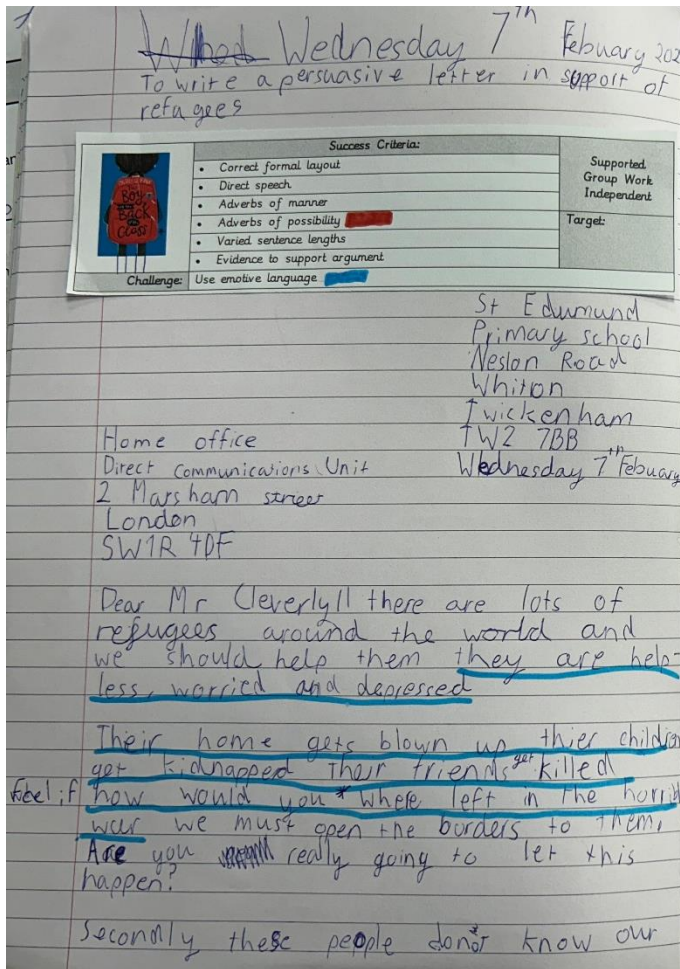 Wednesday 7th Febuary 202
To write a persuasive letter in support of
refugees
Success Criteria:
• Correct formal layout
• Direct speech
• Adverbs of manner
• Adverbs of possibility
• Varied sentence lengths
• Evidence to support argument
Challenge: Use emotive language
Supported
Group Work
Independent
Target:
THE BOY
AT THE
BACK
OF THE
CLASS
St Edumund
Primary school
Neslon Road
Whiton
Twickenham
TW2 7BB
Wednesday 7th Febuary
Home office
Direct Communications Unit
2 Marsham street
London
SW1R 4DF
Dear Mr Cleverly there are lots of
refugees around the world and
we should help them they are help-
less, worried and depressed
Their home gets blown up thier children
get kidnapped Their friends get killed
how would you * where left in the horrid
feel if
war we must open the borders to them.
Are you really going to let this
happen?
Secondly these people donot know our